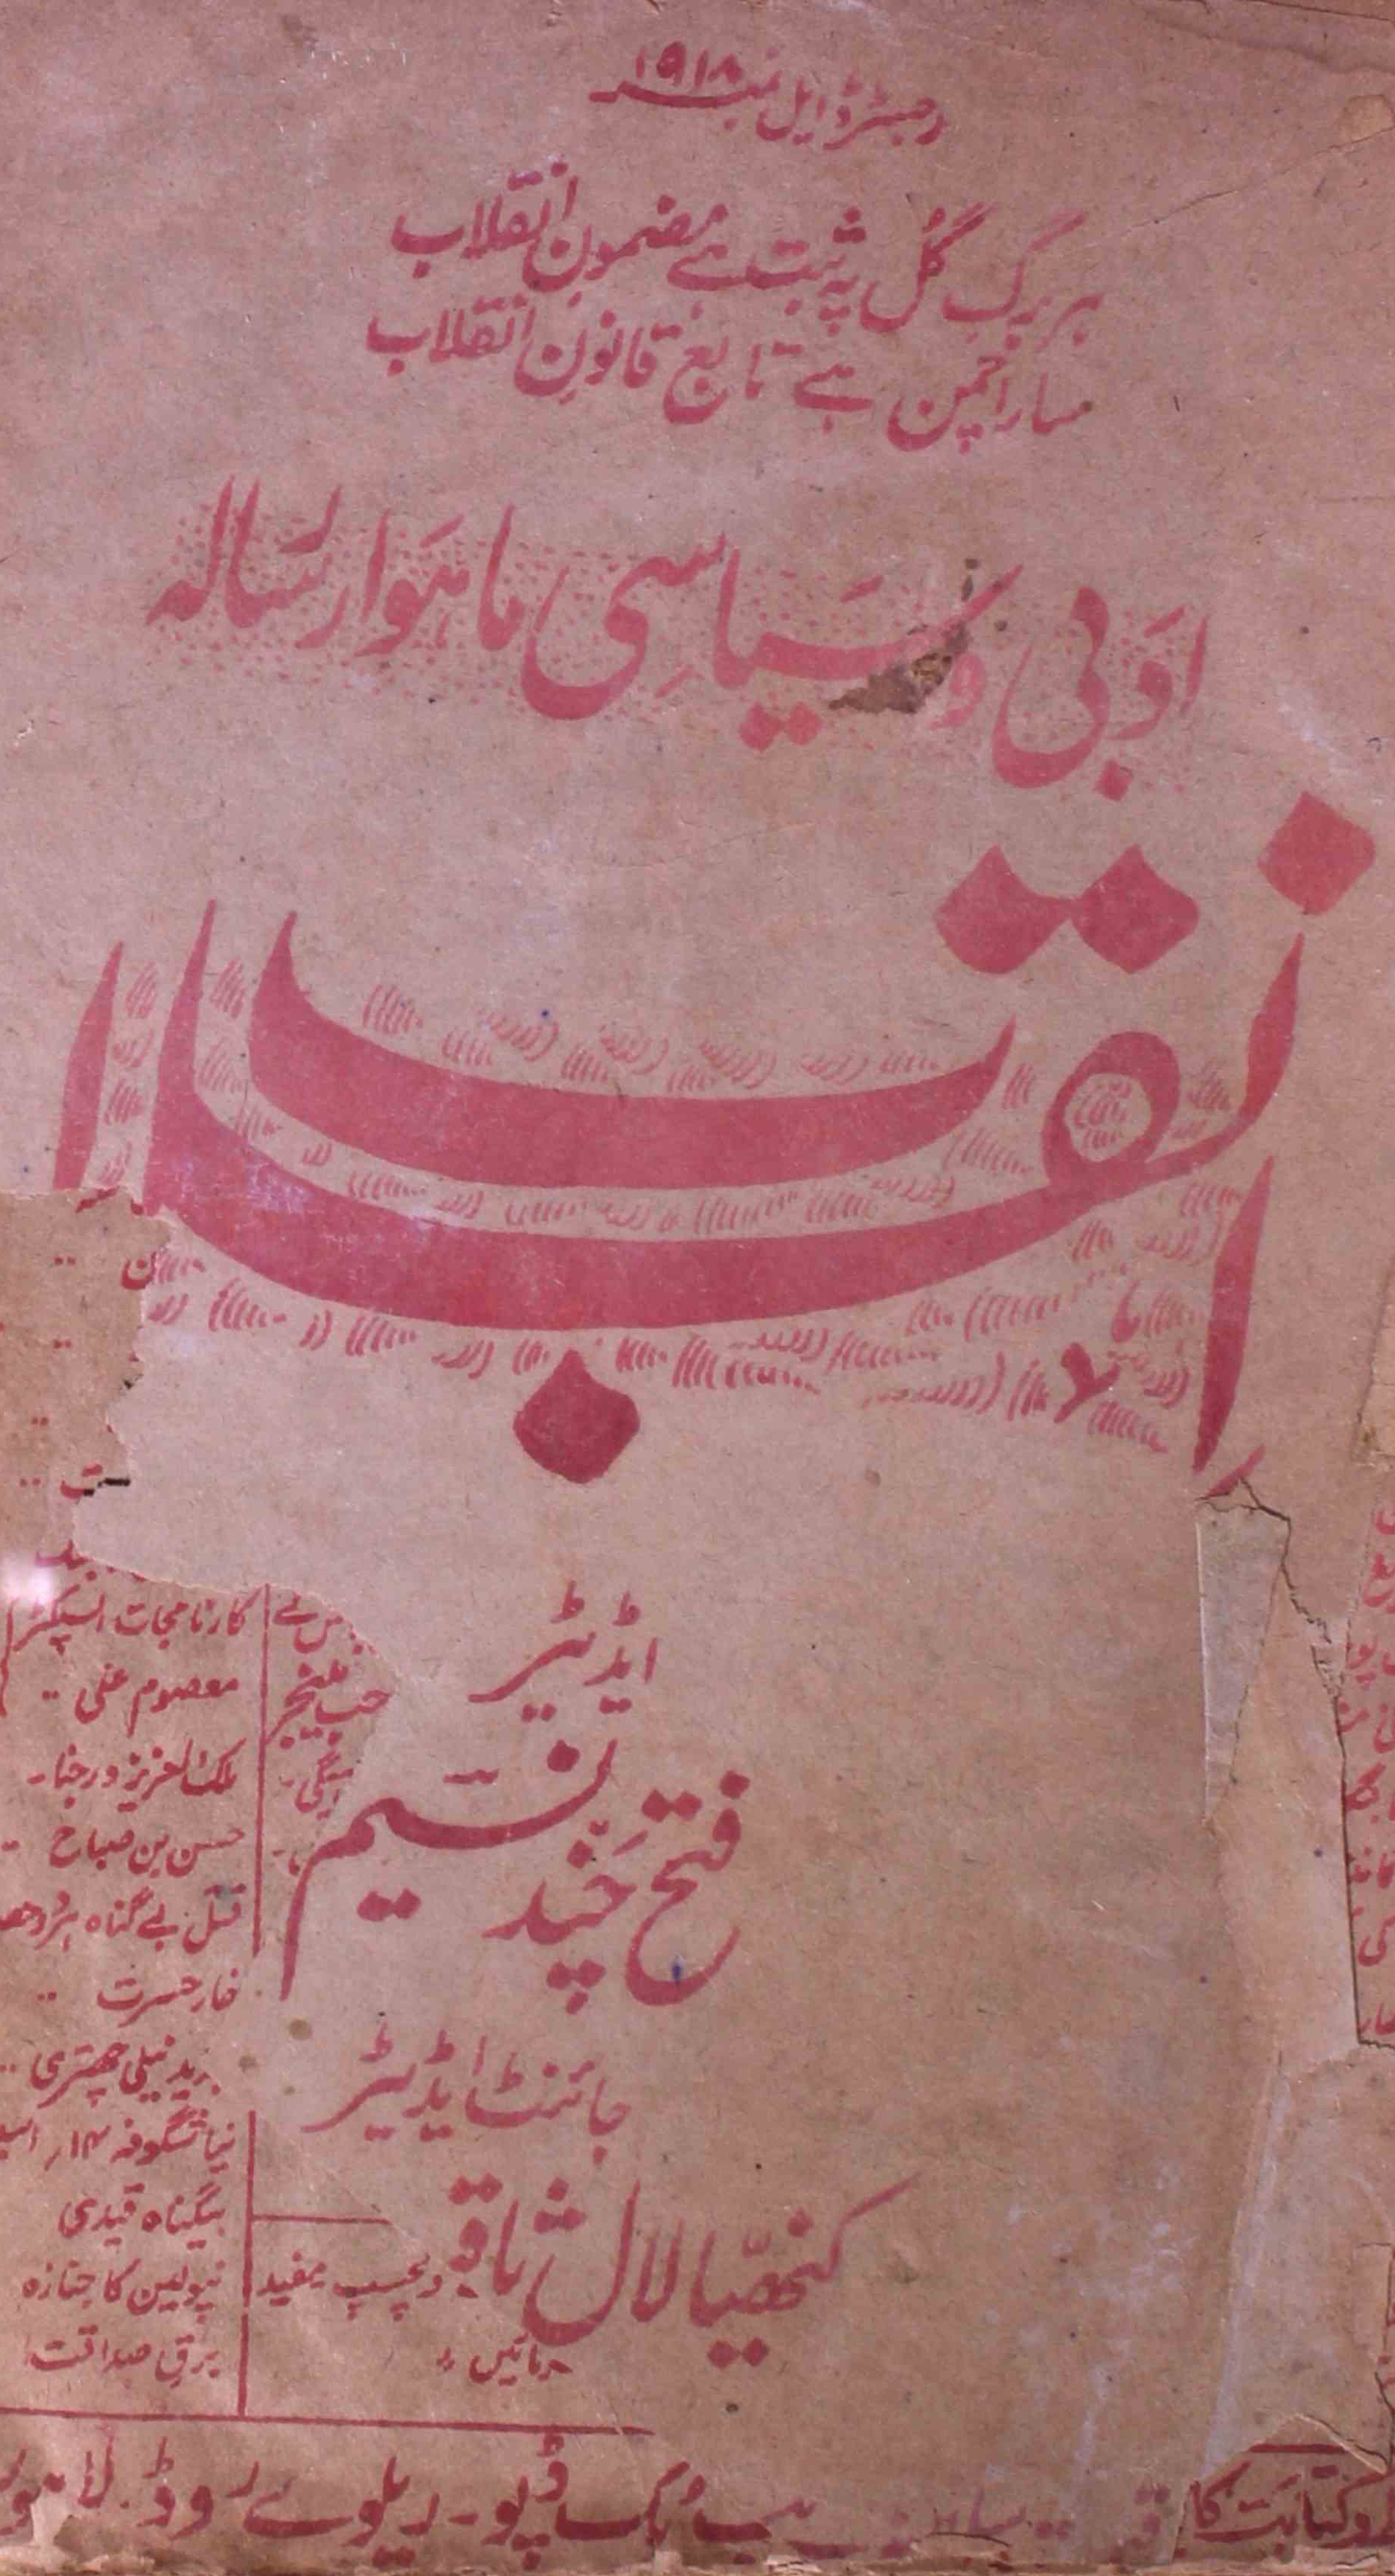 رجسٹرڈ ایل نمبر ۱۹۱۸
ہر برگِ گُل پہ ثبت ہے مضمونِ انقلاب
سارا چمن ہے تابع قانونِ انقلاب
ادبی و سیاسی ماہوار رسالہ
انقلاب
لا
ایڈیٹر
فتح چند نسیم
جائنٹ ایڈیٹر
کنھیّا لال ثاقب
کارنامجات انسپکٹر
معصوم علی
ملک العزیز ورجنا
حسن بن صباح
قتل بے گناہ ہردوحصہ
خار حسرت
نیلی چھتری
نیا شگوفہ ۱۴؍
بیگناہ قیدی
نپولین کا جنازہ
برق صداقت
دلچسپ مفید
وکتابت کا
بک ڈپو ۔ ریلوے روڈ ۔ لاہور